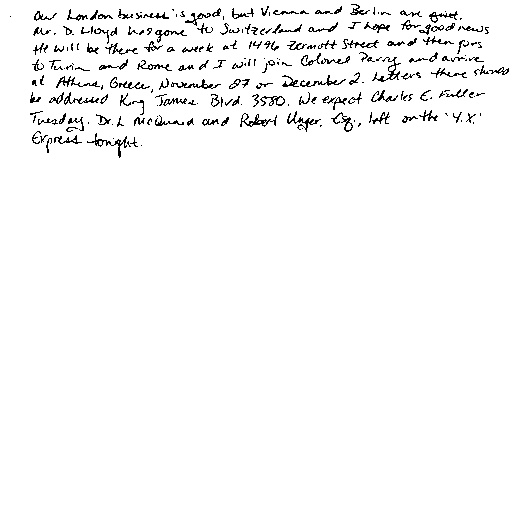 Our London business is good, but Vienna and Berlin are quiet.
Mr. D. Lloyd has gone to Switzerland and I hope for good news
He will be there for a week at 1496 Zermott Street and then
to Turin and Rome and I will join Colonel Parry and arrive
at Athens, Greece, November 27 or December 2. Letters there should
be addressed King James Blvd. 3580. We expect Charles E. Fuller
Tuesday. Dr. L McQuaid and Robert Unger, Esq., left on the 'Y.X.'
Express tonight.